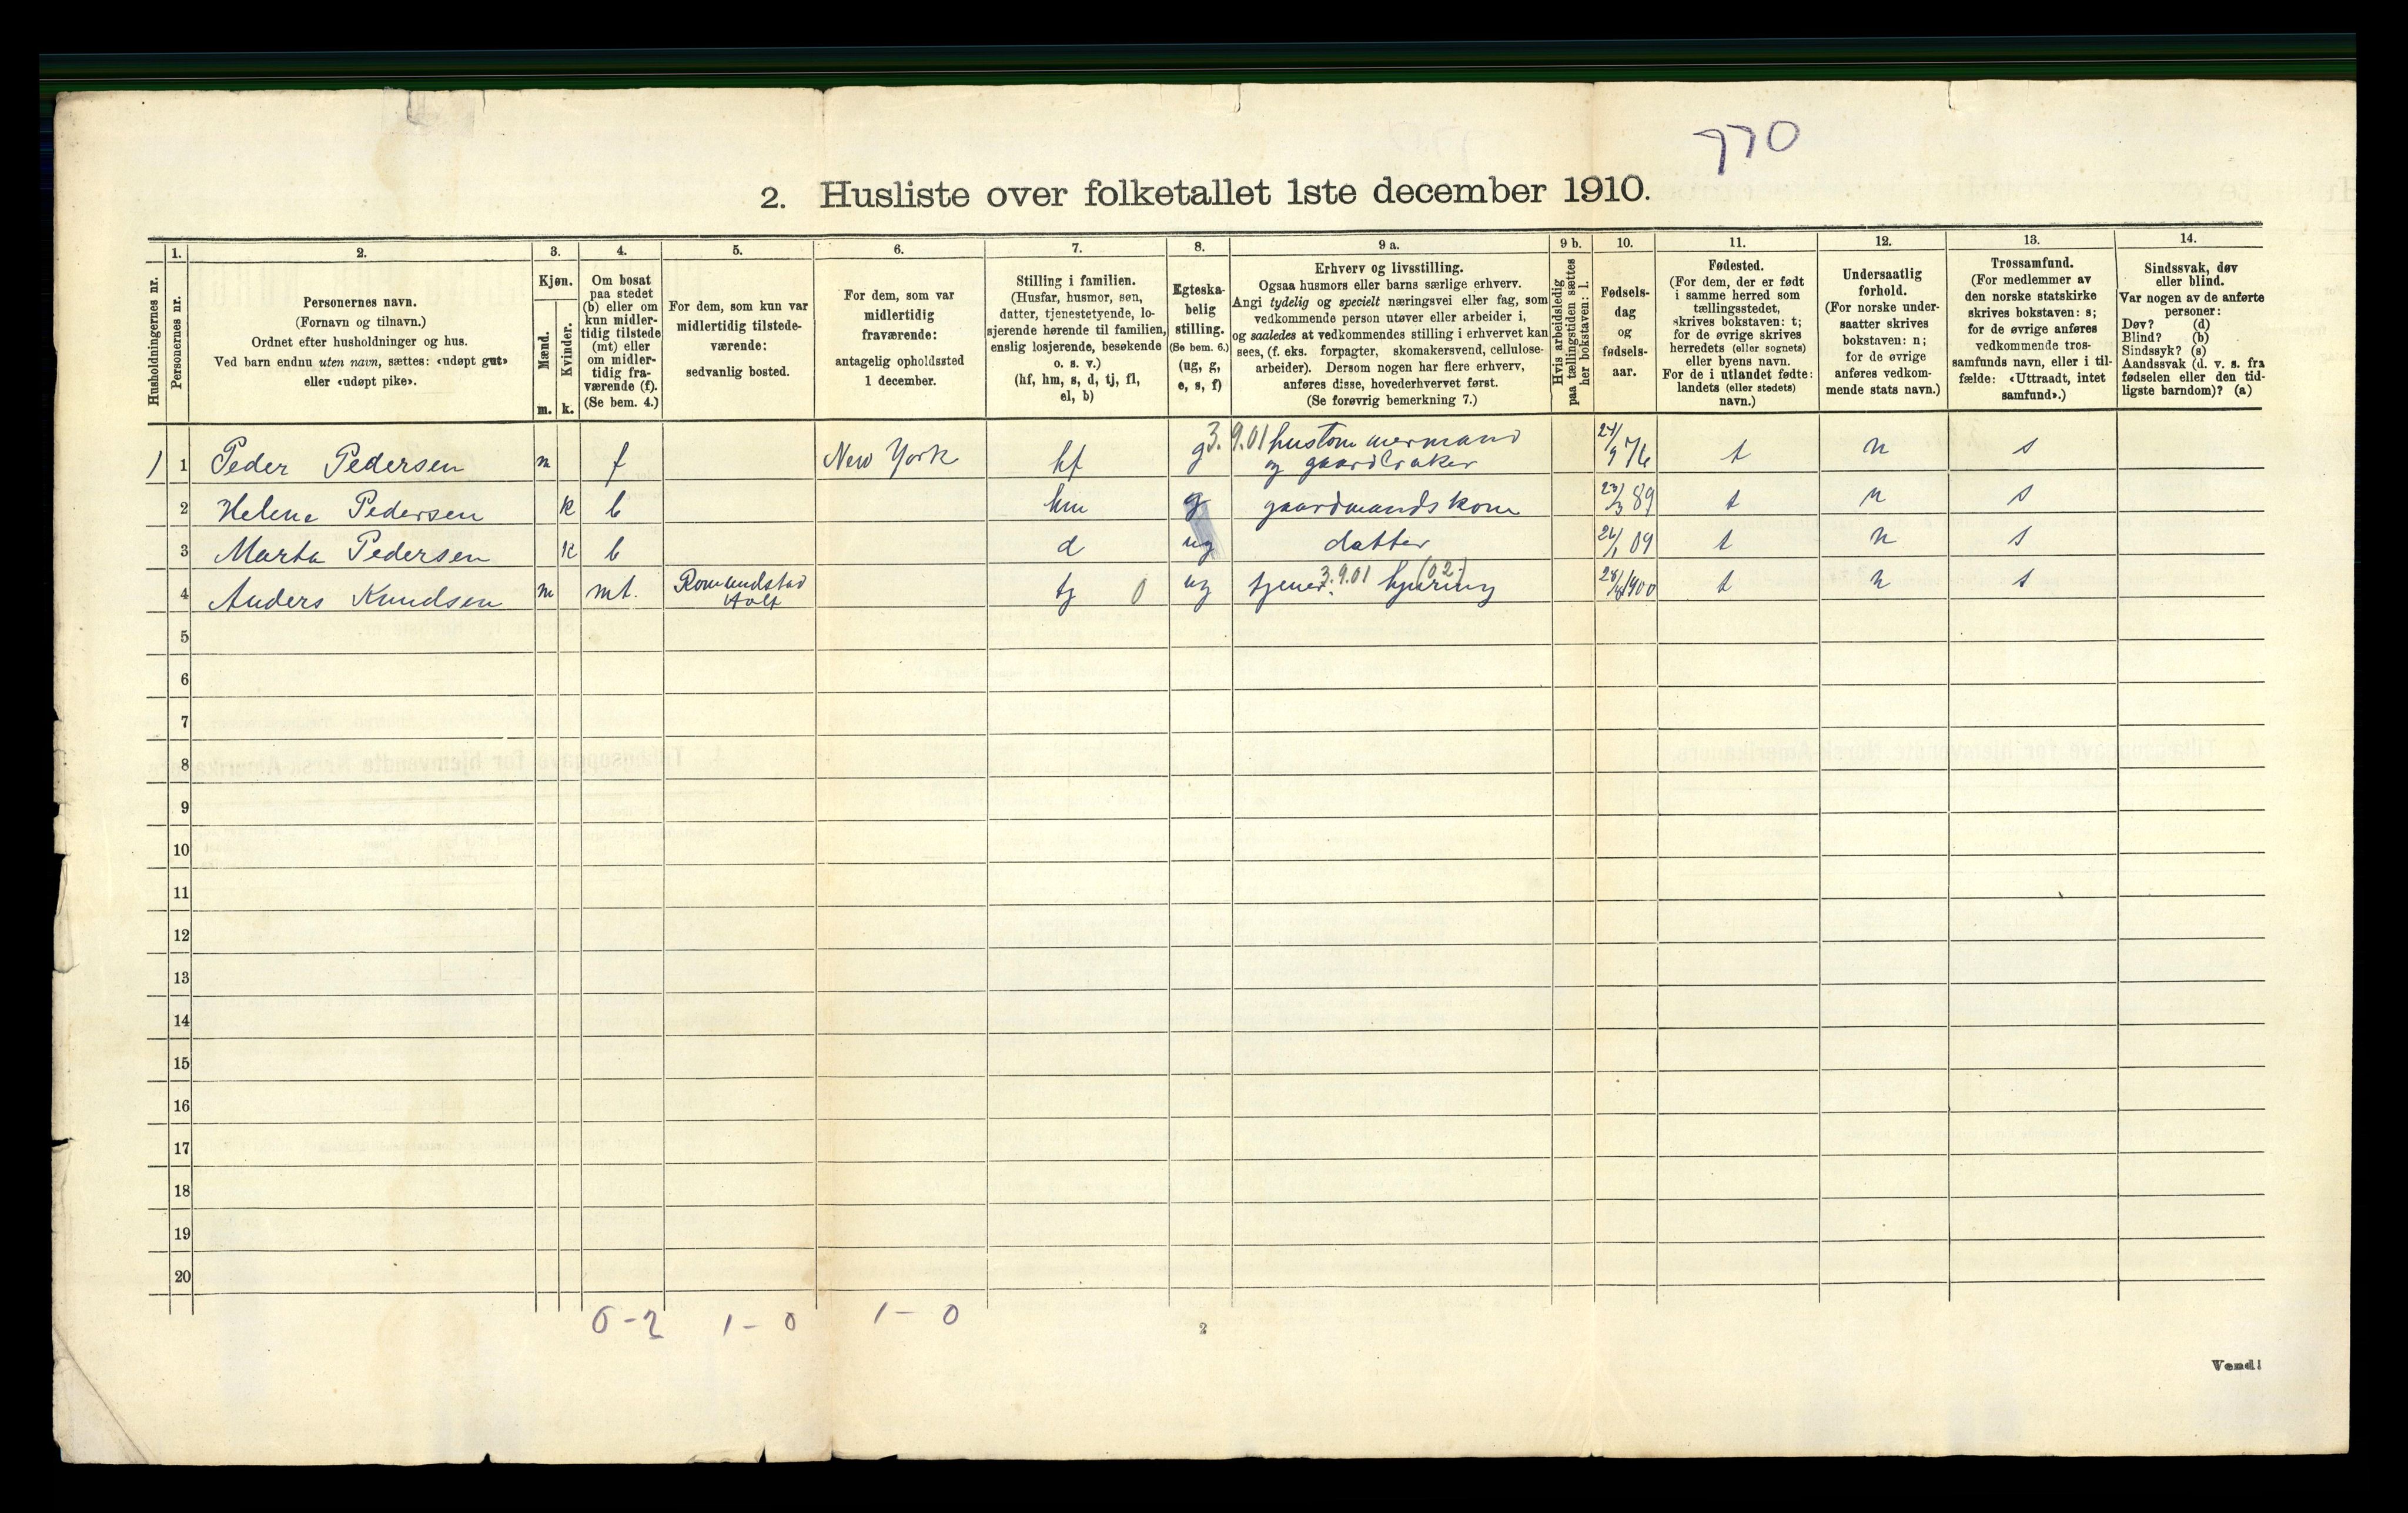 770
2. Husliste over folketallet 1ste december 1910.
Husholdningernes nr.
1.
Personernes nr.
2.
Personernes navn.
(Fornavn og tilnavn.)
Ordnet efter husholdninger og hus.
Ved barn endnu uten navn, sættes: «udøpt gut»
eller «udøpt pike».
3.
Kjøn.
Mænd.
Kvinder.
m.
k.
4.
Om bosat
paa stedet
(b) eller om
kun midler-
tidig tilstede
(mt) eller
om midler-
tidig fra-
værende (f).
(Se bem. 4.)
5.
For dem, som kun var
midlertidig tilstede-
værende:
sedvanlig bosted.
6.
For dem, som var
midlertidig
fraværende:
antagelig opholdssted
1 december.
7.
Stilling i familien.
(Husfar, husmor, søn,
datter, tjenestetyende, lo-
sjerende hørende til familien,
enslig losjerende, besøkende
o. s. v.)
(hf, hm, s, d, tj, fl,
el, b)
8.
Egteska-
belig
stilling.
(Se bem. 6.)
(ug, g,
e, s, f)
9 a.
Erhverv og livsstilling.
Ogsaa husmors eller barns særlige erhverv.
Angi tydelig og specielt næringsvei eller fag, som
vedkommende person utøver eller arbeider i,
og saaledes at vedkommendes stilling i erhvervet kan
sees, (f. eks. forpagter, skomakersvend, cellulose-
arbeider). Dersom nogen har flere erhverv,
anføres disse, hovederhvervet først.
(Se forøvrig bemerkning 7.)
9 b.
Hvis arbeidsledig
paa tællingstiden sættes
her bokstaven: l.
10.
Fødsels-
dag
og
fødsels-
aar.
11.
Fødested.
(For dem, der er født
i samme herred som
tællingsstedet,
skrives bokstaven: t;
for de øvrige skrives
herredets (eller sognets)
eller byens navn.
For de i utlandet fødte:
landets (eller stedets)
navn.)
12.
Undersaatlig
forhold.
(For norske under-
saatter skrives
bokstaven: n;
for de øvrige
anføres vedkom-
mende stats navn.)
13.
Trossamfund.
(For medlemmer av
den norske statskirke
skrives bokstaven: s;
for de øvrige anføres
vedkommende tros-
samfunds navn, eller i til-
fælde: «Uttraadt, intet
samfund».)
14.
Sindssvak, døv
eller blind.
Var nogen av de anførte
personer:
Døv? (d)
Blind? (b)
Sindssyk? (s)
Aandssvak (d. v. s. fra
fødselen eller den tid-
ligste barndom)? (a)
1 1 Peder Pedersen m f New York hf g 3.9.01 hustømmermand
og gaardbruker 24/9 76 t n s
2 Helene Pedersen k b hm g gaardmandskone 23/3 89 t n s
3 Marta Pedersen k b d ug datter 26/1 09 t n s
4 Anders Knudsen m mt. Romundstad
Holt tj 0 ug tjener 3.9.01 hjuring (02.) 28/8 1900 t n s
5
6
7
8
9
10
11
12
13
14
15
16
17
18
19
20
0-2 1-0 1-0
2
Vend!